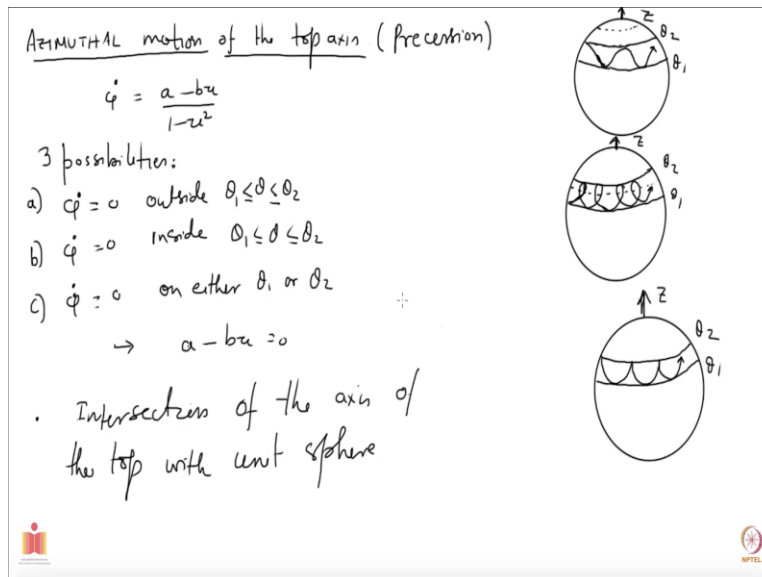 AZIMUTHAL motion of the top axis (Precession)
φ̇ = a - bu / 1 - u²
3 possibilities:
a) φ̇ = 0 outside θ₁ ≤ θ ≤ θ₂
b) φ̇ = 0 inside θ₁ ≤ θ ≤ θ₂
c) φ̇ = 0 on either θ₁ or θ₂
→ a - bu = 0
. Intersection of the axis of
the top with unit sphere
z
θ₂
θ₁
z
θ₂
θ₁
z
θ₂
θ₁
NPTEL